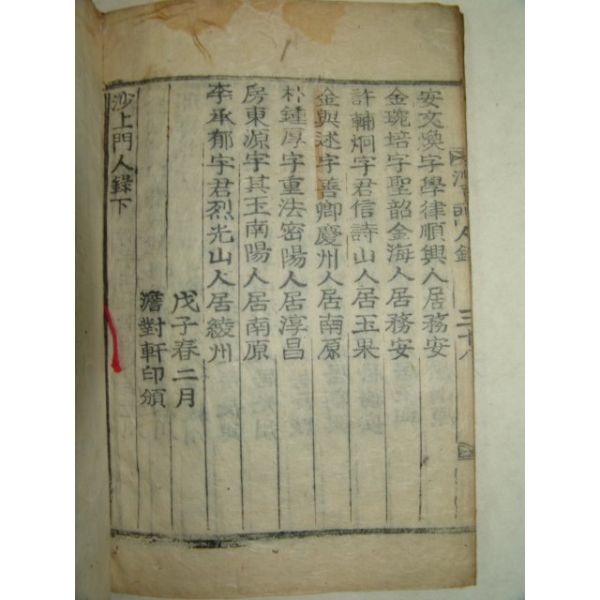 沙上門人錄 三十八
安文煥字學律順興人居務安
金琬培字聖韶金海人居務安
許輔炯字君信詩山人居玉果
金興述字善卿慶州人居南原
朴鍾厚字重法密陽人居淳昌
房東源字其玉南陽人居南原
李承郁字君烈光山人居綾州
戊子春二月
澹對軒印頒
沙上門人錄下